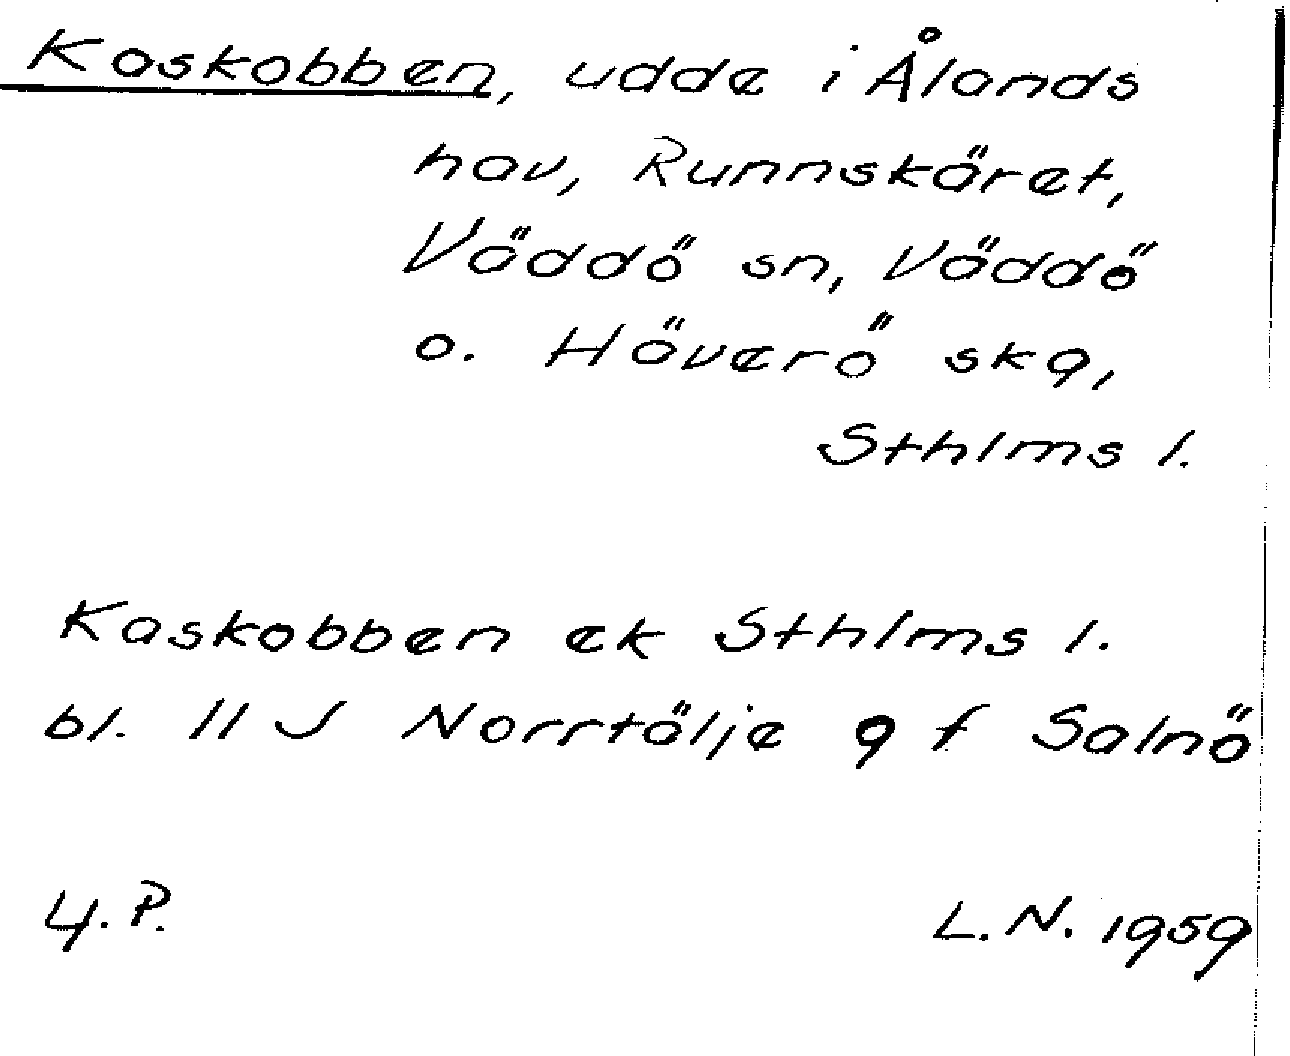 Kaskobben, udde i Ålands
hav, Runnskäret,
Väddö sn, Väddö
o. Häverö skg,
Sthlms l.
Kaskobben ek Sthlms l.
bl. 11 J Norrtälje 9 f Salnö
4. P. L. N. 1959